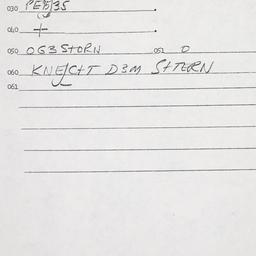 030
040 +
050 OG3STORN 052 D
060 KNECHT D3M STTERN
061